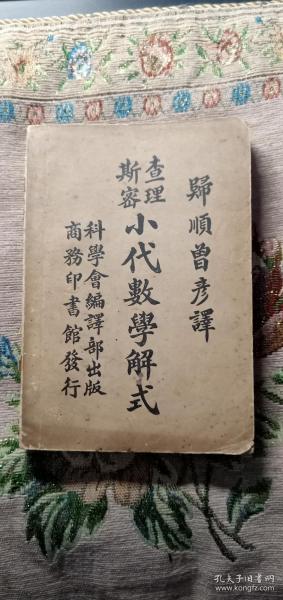 歸順曾彦譯
查理斯密
小代數學解式
科學會編譯部出版
商務印書館發行
孔夫子旧书网
kongfz.com